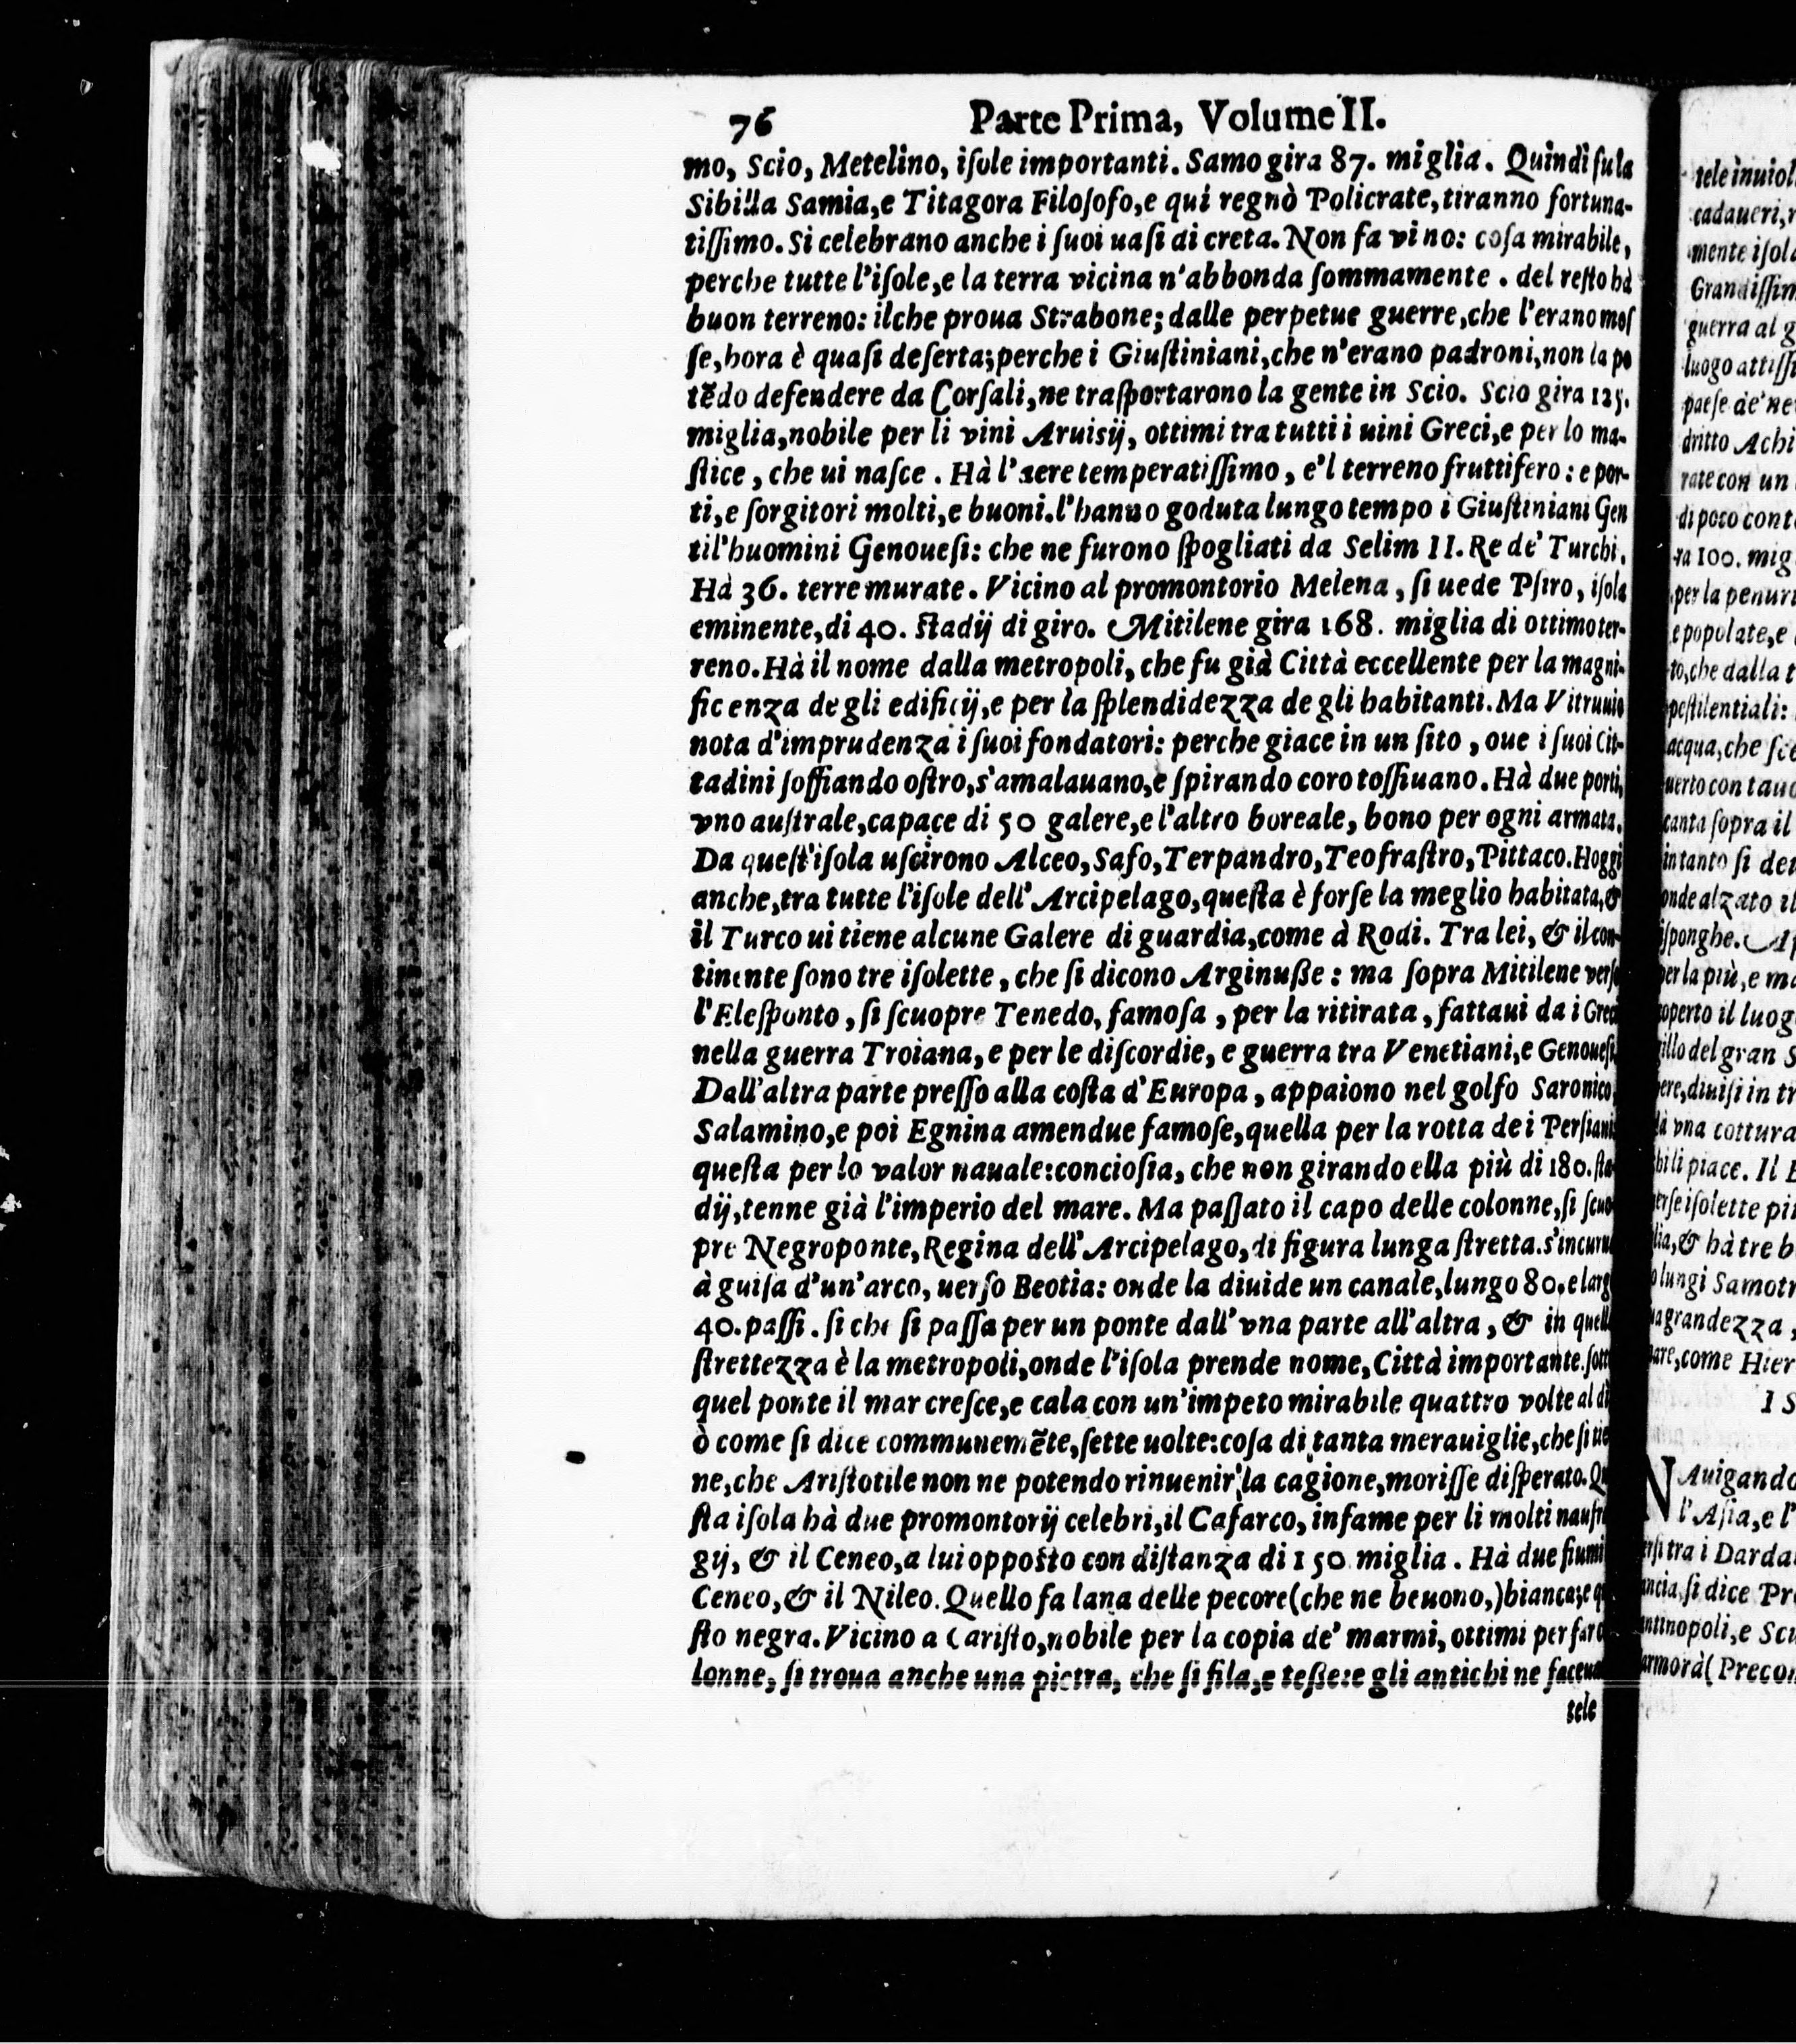 76 Parte Prima, Volume II.
mo, Scio, Metelino, iſole importanti. Samo gira 87. miglia. Quindi fu la
Sibilla Samia, e Titagora Filoſofo, e qui regnò Policrate, tiranno fortuna-
tiſſimo. Si celebrano anche i ſuoi uaſi di creta. Non fa vino: coſa mirabile,
perche tutte l'iſole, e la terra vicina n'abbonda ſommamente. del reſto hà
buon terreno: ilche proua Strabone; dalle perpetue guerre, che l'erano moſ
ſe, hora è quaſi deſerta; perche i Giuſtiniani, che n'erano padroni, non la po
tēdo defendere da Corſali, ne traſportarono la gente in Scio. Scio gira 125.
miglia, nobile per li vini Aruisij, ottimi tra tutti i uini Greci, e per lo ma-
ſtice, che ui naſce. Hà l'aere temperatiſſimo, e'l terreno fruttifero: e por-
ti, e ſorgitori molti, e buoni. l'hanno goduta lungo tempo i Giuſtiniani Gen
til'huomini Genoueſi: che ne furono ſpogliati da Selim II. Re de' Turchi.
Hà 36. terre murate. Vicino al promontorio Melena, ſi uede Pſiro, iſola
eminente, di 40. ſtadij di giro. Mitilene gira 168. miglia di ottimo ter-
reno. Hà il nome dalla metropoli, che fu già Città eccellente per la magni-
ficenza degli edificij, e per la ſplendidezza de gli habitanti. Ma Vitruuio
nota d'imprudenza i ſuoi fondatori: perche giace in un ſito, oue i ſuoi Cit-
tadini ſoffiando oſtro, s'amalauano, e ſpirando coro toſſiuano. Hà due porti,
vno auſtrale, capace di 50 galere, e l'altro boreale, bono per ogni armata.
Da queſt'iſola uſcirono Alceo, Safo, Terpandro, Teofraſtro, Pittaco. Hoggi
anche, tra tutte l'iſole dell'Arcipelago, queſta è forſe la meglio habitata, &
il Turco ui tiene alcune Galere di guardia, come à Rodi. Tra lei, & il con-
tinente ſono tre iſolette, che ſi dicono Arginuße: ma ſopra Mitilene verſo
l'Eleſponto, ſi ſcuopre Tenedo, famoſa, per la ritirata, fattaui da i Greci
nella guerra Troiana, e per le diſcordie, e guerra tra Venetiani, e Genoueſi.
Dall'altra parte preſſo alla coſta d'Europa, appaiono nel golfo Saronico,
Salamino, e poi Egnina amendue famoſe, quella per la rotta dei Perſiani
queſta per lo valor nauale: concioſia, che non girando ella più di 180. ſta
dij, tenne già l'imperio del mare. Ma paſſato il capo delle colonne, ſi ſcuo
pre Negroponte, Regina dell'Arcipelago, di figura lunga ſtretta. s'incurua
à guiſa d'un'arco, uerſo Beotia: onde la diuide un canale, lungo 80. e larg
40. paſſi. ſi che ſi paſſa per un ponte dall'vna parte all'altra, & in quell
ſtrettezza è la metropoli, onde l'iſola prende nome, Città importante. ſott
quel ponte il mar creſce, e cala con un'impeto mirabile quattro volte al dì
ò come ſi dice communemēte, ſette uolte: coſa di tanta merauiglie, che ſi ue
ne, che Ariſtotile non ne potendo rinuenir la cagione, moriſſe diſperato. Qu
ſta iſola hà due promontorij celebri, il Cafarco, infame per li molti naufra
gij, & il Ceneo, a lui oppoſto con diſtanza di 150 miglia. Hà due fiumi
Ceneo, & il Nileo. Quello fa lana delle pecore (che ne beuono,) bianca; e qu
ſto negra. Vicino a Cariſto, nobile per la copia de' marmi, ottimi per far c
lonne, ſi troua anche una pietra, che ſi fila, e teßere gli antichi ne faceua
tele
tele inuiol
cadaueri,
mente iſola
Grandiſſim
guerra al g
luogo attiſſi
paeſe de' ne
dritto Achi
rate con un
di poco cont
ra 100. mig
per la penuri
e popolate, e
to, che dalla t
peſtilentiali:
acqua, che ſce
uerto con tauo
canta ſopra il
in tanto ſi de
onde alzato il
ſponghe. Ap
per la più, e ma
operto il luog
illo del gran S
ere, diuiſi in tr
à vna cottura
bili piace. Il
erſe iſolette pi
lia, & hà tre b
lungi Samotr
a grandezza,
are, come Hier
I S
NAuigando
l'Aſia, e l'
rſi tra i Darda
ancia, ſi dice Pr
antinopoli, e Scu
armorà (Precon